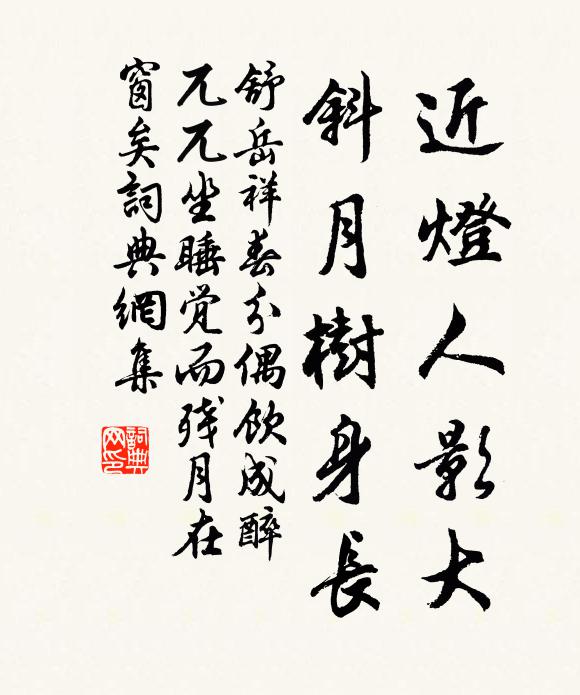 近燈人影大
斜月樹身長
舒岳祥春分偶飲成醉
兀兀坐睡覚而残月在
窗矣詞典網集
詞典
网印